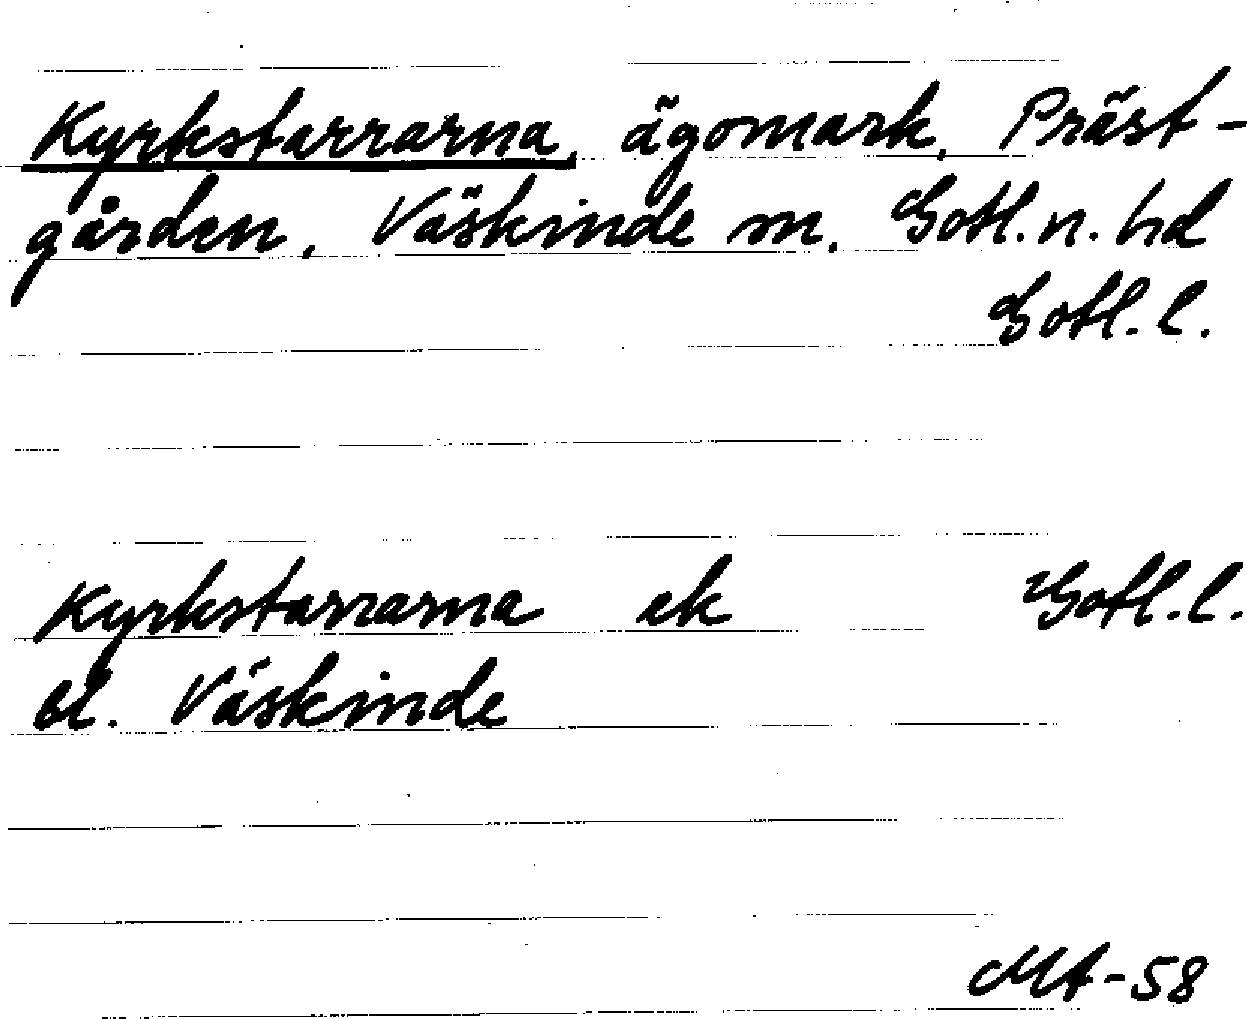 Kyrkstarrarna, ägomark, Präst-
gården, Väskinde sn, Gotl. n. hd
Gotl. l.
Kyrkstarrarna ek Gotl. l.
bl. Väskinde
MA-58